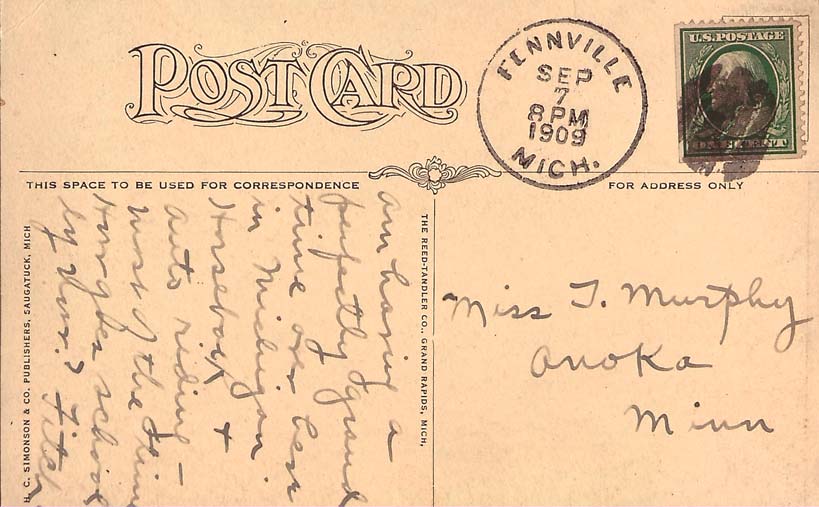 POST CARD
FENNVILLE
SEP
7
8 PM
1909
MICH.
U.S. POSTAGE
THIS SPACE TO BE USED FOR CORRESPONDENCE
FOR ADDRESS ONLY
am having a
perfectly grand
time over here
in Michigan.
Horseback +
auto riding —
most of the time
school
by
THE REED-TANDLER CO., GRAND RAPIDS, MICH.
H. C. SIMONSON & CO. PUBLISHERS, SAUGATUCK, MICH
Miss T. Murphy
Anoka
Minn